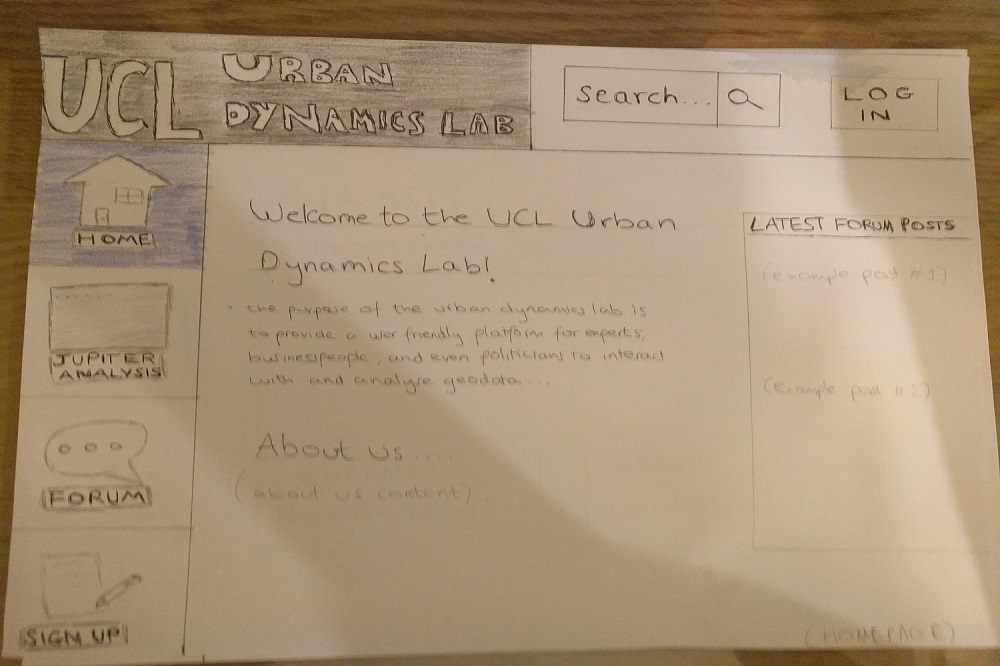 UCL URBAN
DYNAMICS LAB
search...
LOG
IN
HOME
JUPITER
ANALYSIS
FORUM
SIGN UP
Welcome to the UCL Urban
Dynamics Lab!
• the purpose of the urban dynamics lab is
to provide a user friendly platform for experts,
businesspeople, and even politicians to interact
with and analyse geodata...
About us....
(about us content)
LATEST FORUM POSTS
(example post #1)
(example post #2)
(HOMEPAGE)